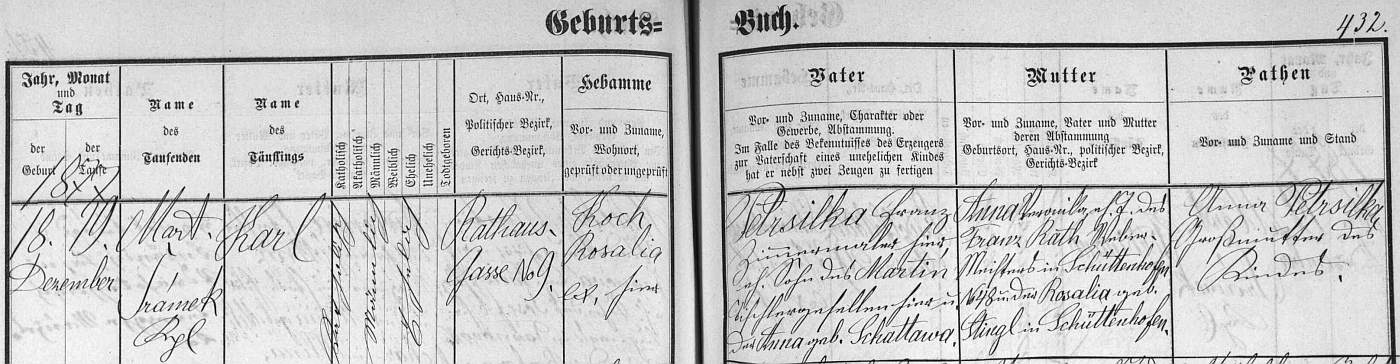 Geburts=
Buch.
432.
Jahr, Monat
und
Tag
der
Geburt
der
Taufe
Name
des
Taufenden
Name
des
Täuflings
Katholisch
Akatholisch
Männlich
Weiblich
Ehelich
Unehelich
Todtgeboren
Ort, Haus-Nr.,
Politischer Bezirk,
Gerichts-Bezirk,
Hebamme
Vor- und Zuname,
Wohnort,
geprüft oder ungeprüft
Vater
Vor- und Zuname, Charakter oder
Gewerbe, Abstammung.
Im Falle des Bekenntnisses des Erzeugers
zur Vaterschaft eines unehelichen Kindes
hat er nebst zwei Zeugen zu fertigen
Mutter
Vor- und Zuname, Vater und Mutter
deren Abstammung
Geburtsort, Haus-Nr., politischer Bezirk,
Gerichts-Bezirk
Pathen
Vor- und Zuname und Stand
18. 19.
Dezember
Mart.
Sramek
Kpl
Karl
Katholisch
Männlich
Ehelich
Rathaus-
Gasse No 9.
Koch
Rosalia
ex. hier
Petrsilka Franz
Zimmermaler hier,
eh. Sohn des Martin
Tischlergesellen hier u.
der Anna geb. Schattawa.
Anna Veronika eh. T. des
Franz Rath Weber-
Meisters in Schüttenhofen
No 48 u. der Rosalia geb.
Stingl in Schüttenhofen.
Anna Petrsilka,
Großmutter des
Kindes.